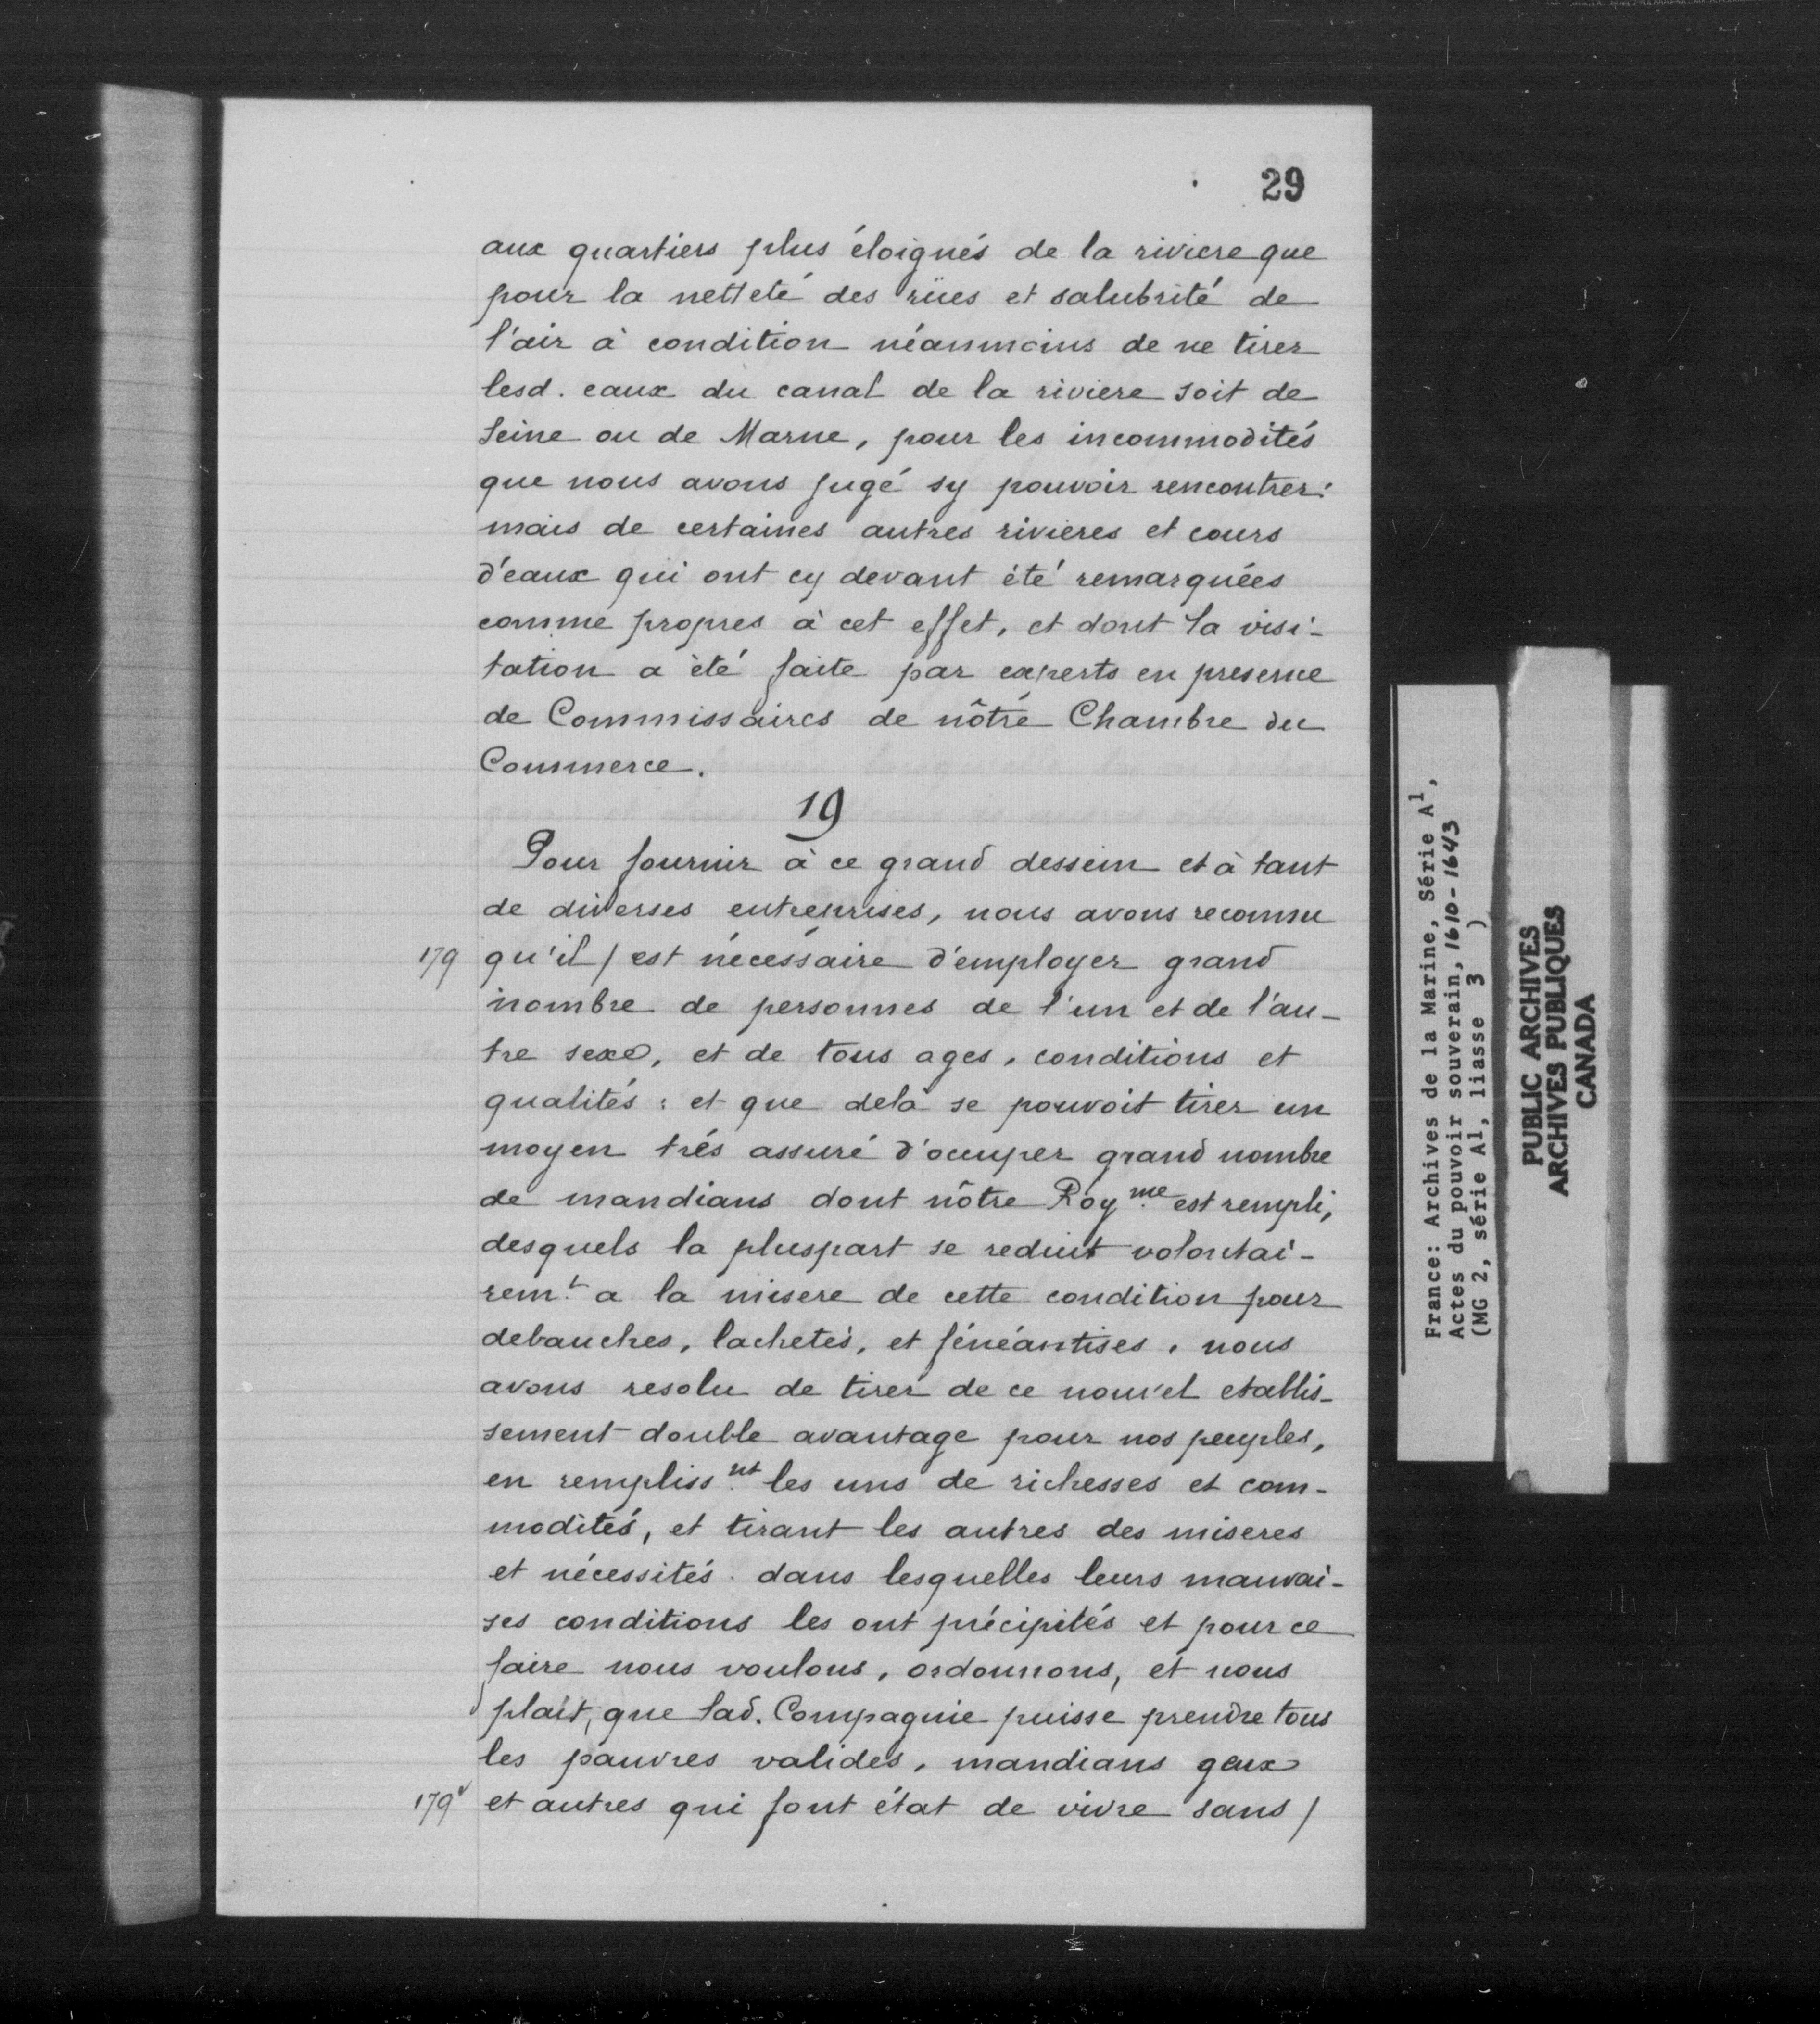 29
aux quartiers plus éloignés de la riviere que
pour la netteté des rües et salubrité de
l'air à condition néanmoins de ne tirer
lesd. eaux du canal de la riviere soit de
Seine ou de Marne, pour les incommodités
que nous avons jugé sy pouvoir rencontrer:
mais de certaines autres rivieres et cours
d'eaux qui ont cy devant été remarquées
comme propres à cet effet, et dont la visi-
tation a été faite par experts en presence
de Commissaires de nôtre Chambre du
Commerce.
19
Pour fournir à ce grand dessein et à tant
de diverses entreprises, nous avons reconnu
179 qu'il / est nécessaire d'employer grand
nombre de personnes de l'un et de l'au-
tre sexe, et de tous ages, conditions et
qualités : et que delà se pouvoit tirer un
moyen trés assuré d'occuper grand nombre
de mandians dont nôtre Roy.me est rempli,
desquels la pluspart se reduit volontai-
rem.t a la misere de cette condition pour
debauches, lachetés, et fénéantises, nous
avons resolu de tirer de ce nouvel etablis-
sement double avantage pour nos peuples,
en rempliss.nt les uns de richesses et com-
modités, et tirant les autres des miseres
et nécessités dans lesquelles leurs mauvai-
ses conditions les ont précipités et pour ce
faire nous voulons, ordonnons, et nous
plait, que lad. Compagnie puisse prendre tous
les pauvres valides, mandians geux
179v et autres qui font état de vivre sans /
France: Archives de la Marine, Série A1,
Actes du pouvoir souverain, 1610-1643
(MG 2, série A1, liasse 3 )
PUBLIC ARCHIVES
ARCHIVES PUBLIQUES
CANADA